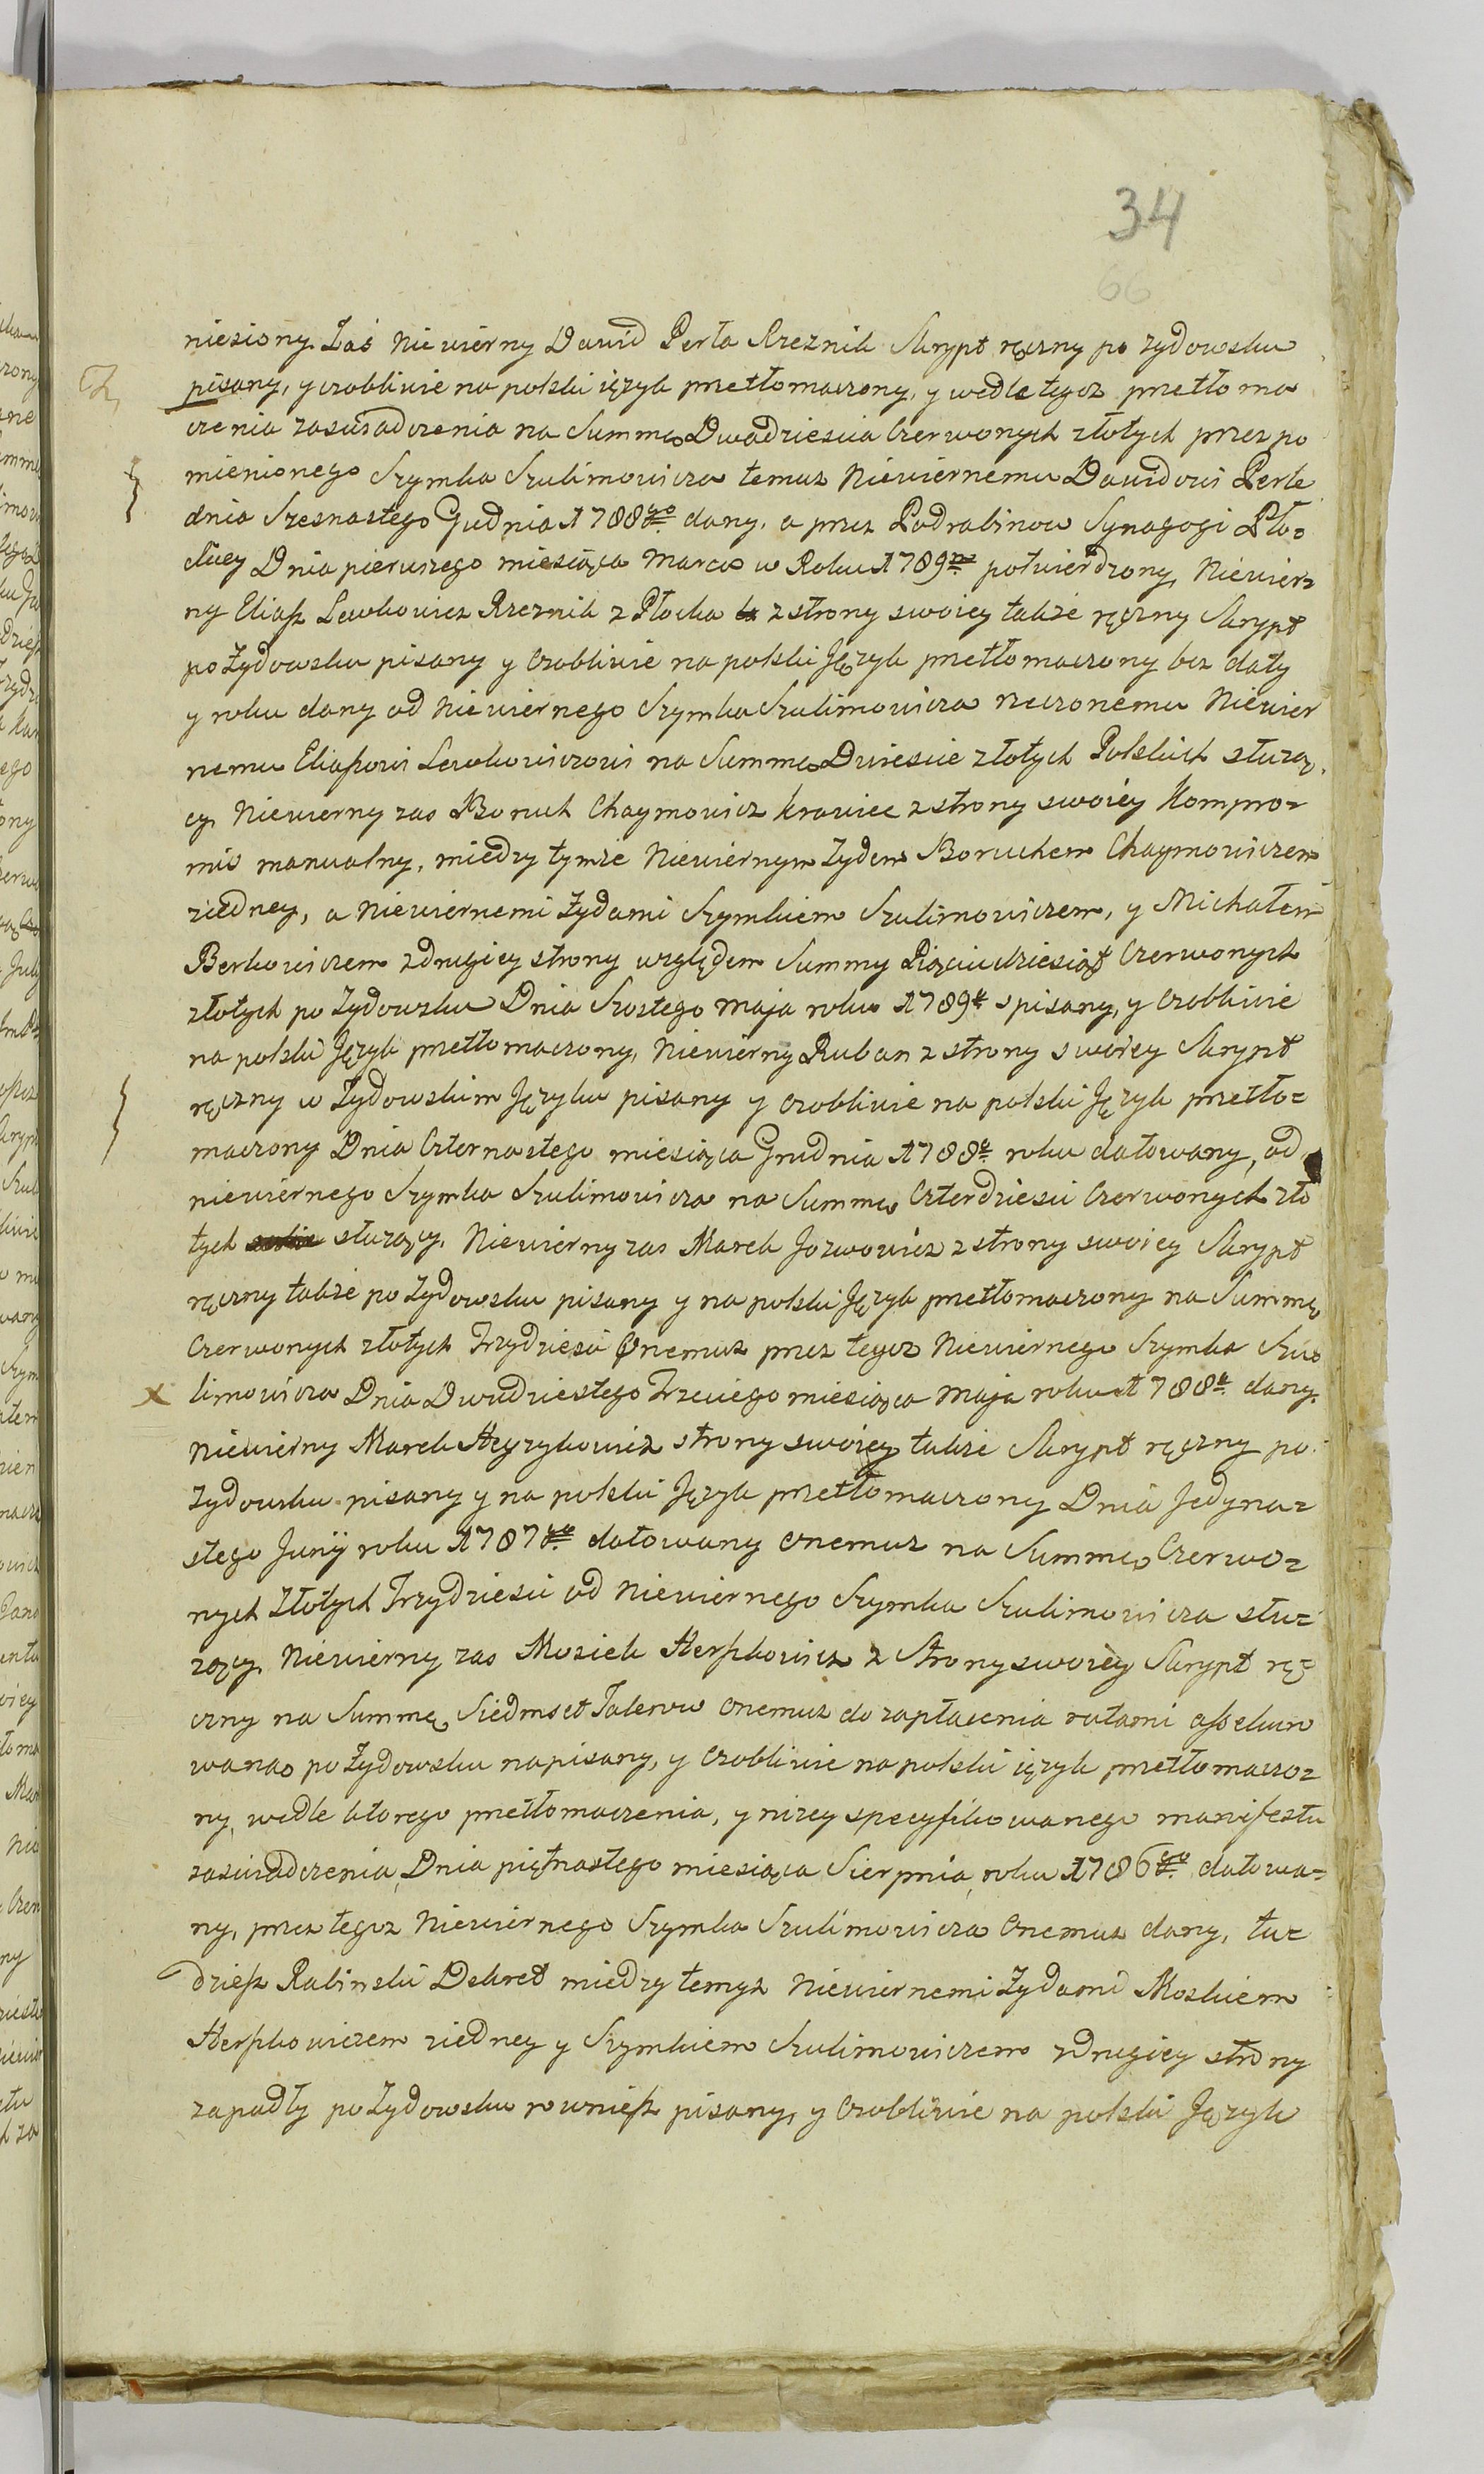 34
66
niesiony. Zaś Niewierny Dawid Perła Rzeznik Skrypt ręczny po zydowsku
pisany, y osobliwie na polski ięzyk przetłomaczony, y wedle tegoz przetłoma
czenia zaswiadczenia na Summę Dwadziescia Czerwonych złotych przez po
mienionego Szymka Szulimowicza temuz Niewiernemu Dawidowi Perle
dnia Szesnastego Grudnia 1788go dany, a przez Podrabinow Synagogi Pło=
ckiey Dnia pierwszego miesiąca Marca w Roku 1789m potwierdzony, Niewier=
ny Eliasz Lewkowicz Rzeznik z Płocka z strony swoiey także ręczny Skrypt
po Zydowsku pisany y osobliwie na polski Język przetłomaczony bez daty
y roku dany od Niewiernego Szymka Szulimowicza rzeczonemu Niewier
nemu Eliaszowi Lewkowiczowi na Summę Dwiescie złotych Polskich słuzą,
cy, Niewierny zas Boruch Chaymowicz krawiec z strony swoiey Kompro=
mis manualny, miedzy tymże Niewiernym Zydem Boruchem Chaymowiczem
ziedney, a Niewiernemi Zydami Szymkiem Szulimowiczem, y Michałem
Berkowiczem z drugiey strony względem Summy Pięciudziesiąt Czerwonych
złotych po Zydowsku Dnia Szostego Maja roku 1789k spisany, y osobliwie
na polski Język przetłomaczony, Niewierny Ruban z strony swoiey Skrypt
ręczny w Zydowskim Języku pisany y osobliwie na polski Język przetło=
maczony Dnia Czternastego miesiąca Grudnia 1788k roku datowany, od
niewiernego Szymka Szulimowicza na Summę Czterdziesci Czerwonych zło
tych słuzący, Niewierny zas Marek Jozwowicz z strony swoiey Skrypt
ręczny także po Zydowsku pisany y na polski Język przetłomaczony na Summę
Czerwonych złotych Trzydziesci Onemuz przez tegoz Niewiernego Szymka Szu
limowicza Dnia Dwudziestego Trzeciego miesiąca Maja roku 1788k dany.
Niewierny Marek Heyzykowicz strony swoiey także Skrypt ręczny po
Zydowsku pisany y na polski Język przetłomaczony Dnia Jedyna=
stego Junÿ roku 1787go datowany onemuz na Summę Czerwo=
nych Złotych Trzydziesci od Niewiernego Szymka Szulimowicza słu=
zący. Niewierny zas Mosiek Herszkowicz z Strony swoiey Skrypt rę
czny na Summę Siedmset Talerow onemuz do zapłacenia ratami assekuro
waną po Zydowsku napisany, y osobliwie na polski ięzyk przetłomaczo=
ny, wedle ktorego przetłomaczenia, y nizey specyfikowanego manifestu
zaswiadczenia, Dnia piętnastego miesiąca Sierpnia roku 1786go datowa=
ny, przez tegoz Niewiernego Szymka Szulimowicza Onemuz dany, tu=
dziesz Rabinski Dekret miedzy temyz Niewiernemi Zydami Moskiem
Herszkowiczem ziedney y Szymkiem Szulimowiczem z Drugiey strony
zapadły po Zydowsku rowniesz pisany, y osobliwie na polski Język